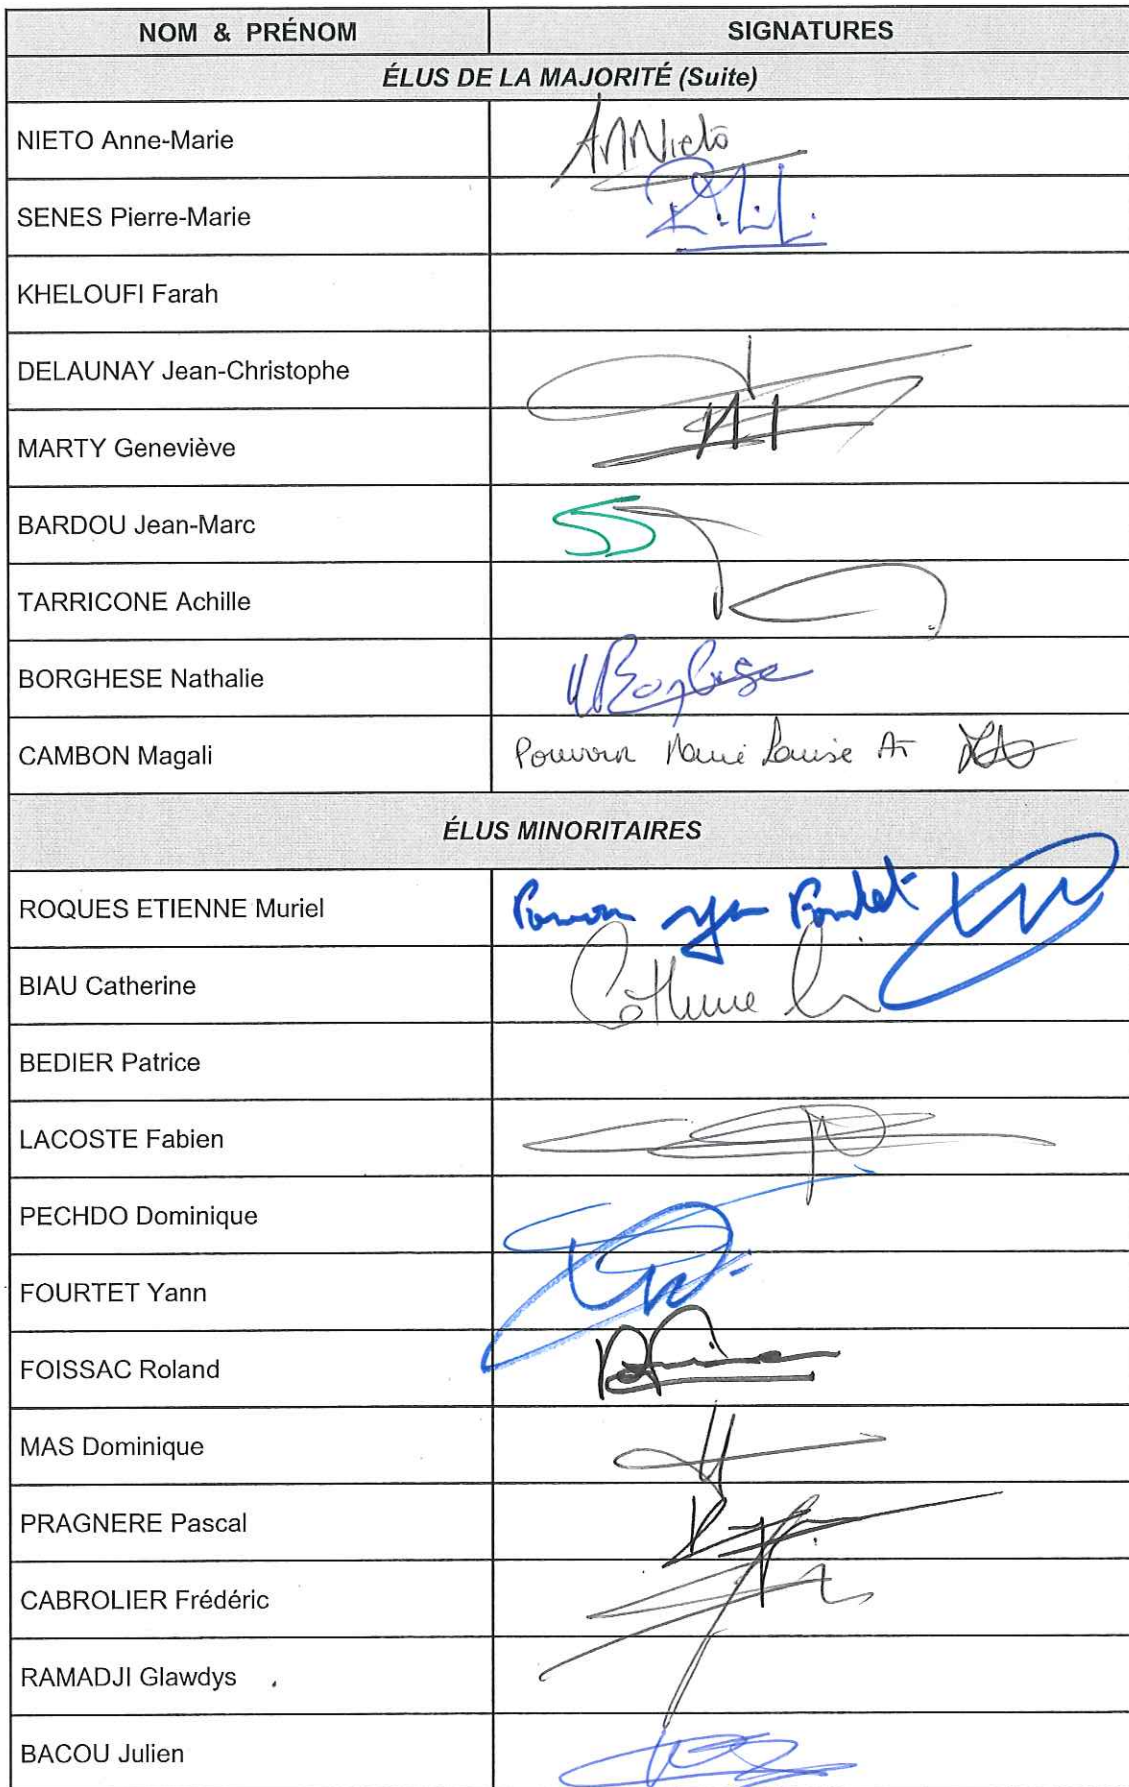 NOM & PRÉNOM SIGNATURES
ÉLUS DE LA MAJORITÉ (Suite)
NIETO Anne-Marie AMNieto
SENES Pierre-Marie
KHELOUFI Farah
DELAUNAY Jean-Christophe
MARTY Geneviève
BARDOU Jean-Marc
TARRICONE Achille
BORGHESE Nathalie NBorghese
CAMBON Magali Pouvoir Marie Louise At
ÉLUS MINORITAIRES
ROQUES ETIENNE Muriel Pouvoir Yann Fourtet
BIAU Catherine Catherine
BEDIER Patrice
LACOSTE Fabien
PECHDO Dominique
FOURTET Yann
FOISSAC Roland
MAS Dominique
PRAGNERE Pascal
CABROLIER Frédéric
RAMADJI Glawdys
BACOU Julien